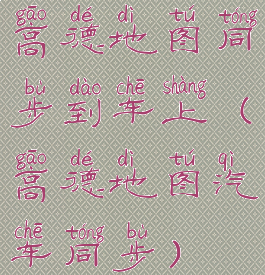 gāo dé dì tú tóng
高德地图同
bù dào chē shàng
步到车上（
gāo dé dì tú qì
高德地图汽
chē tóng bù
车同步）